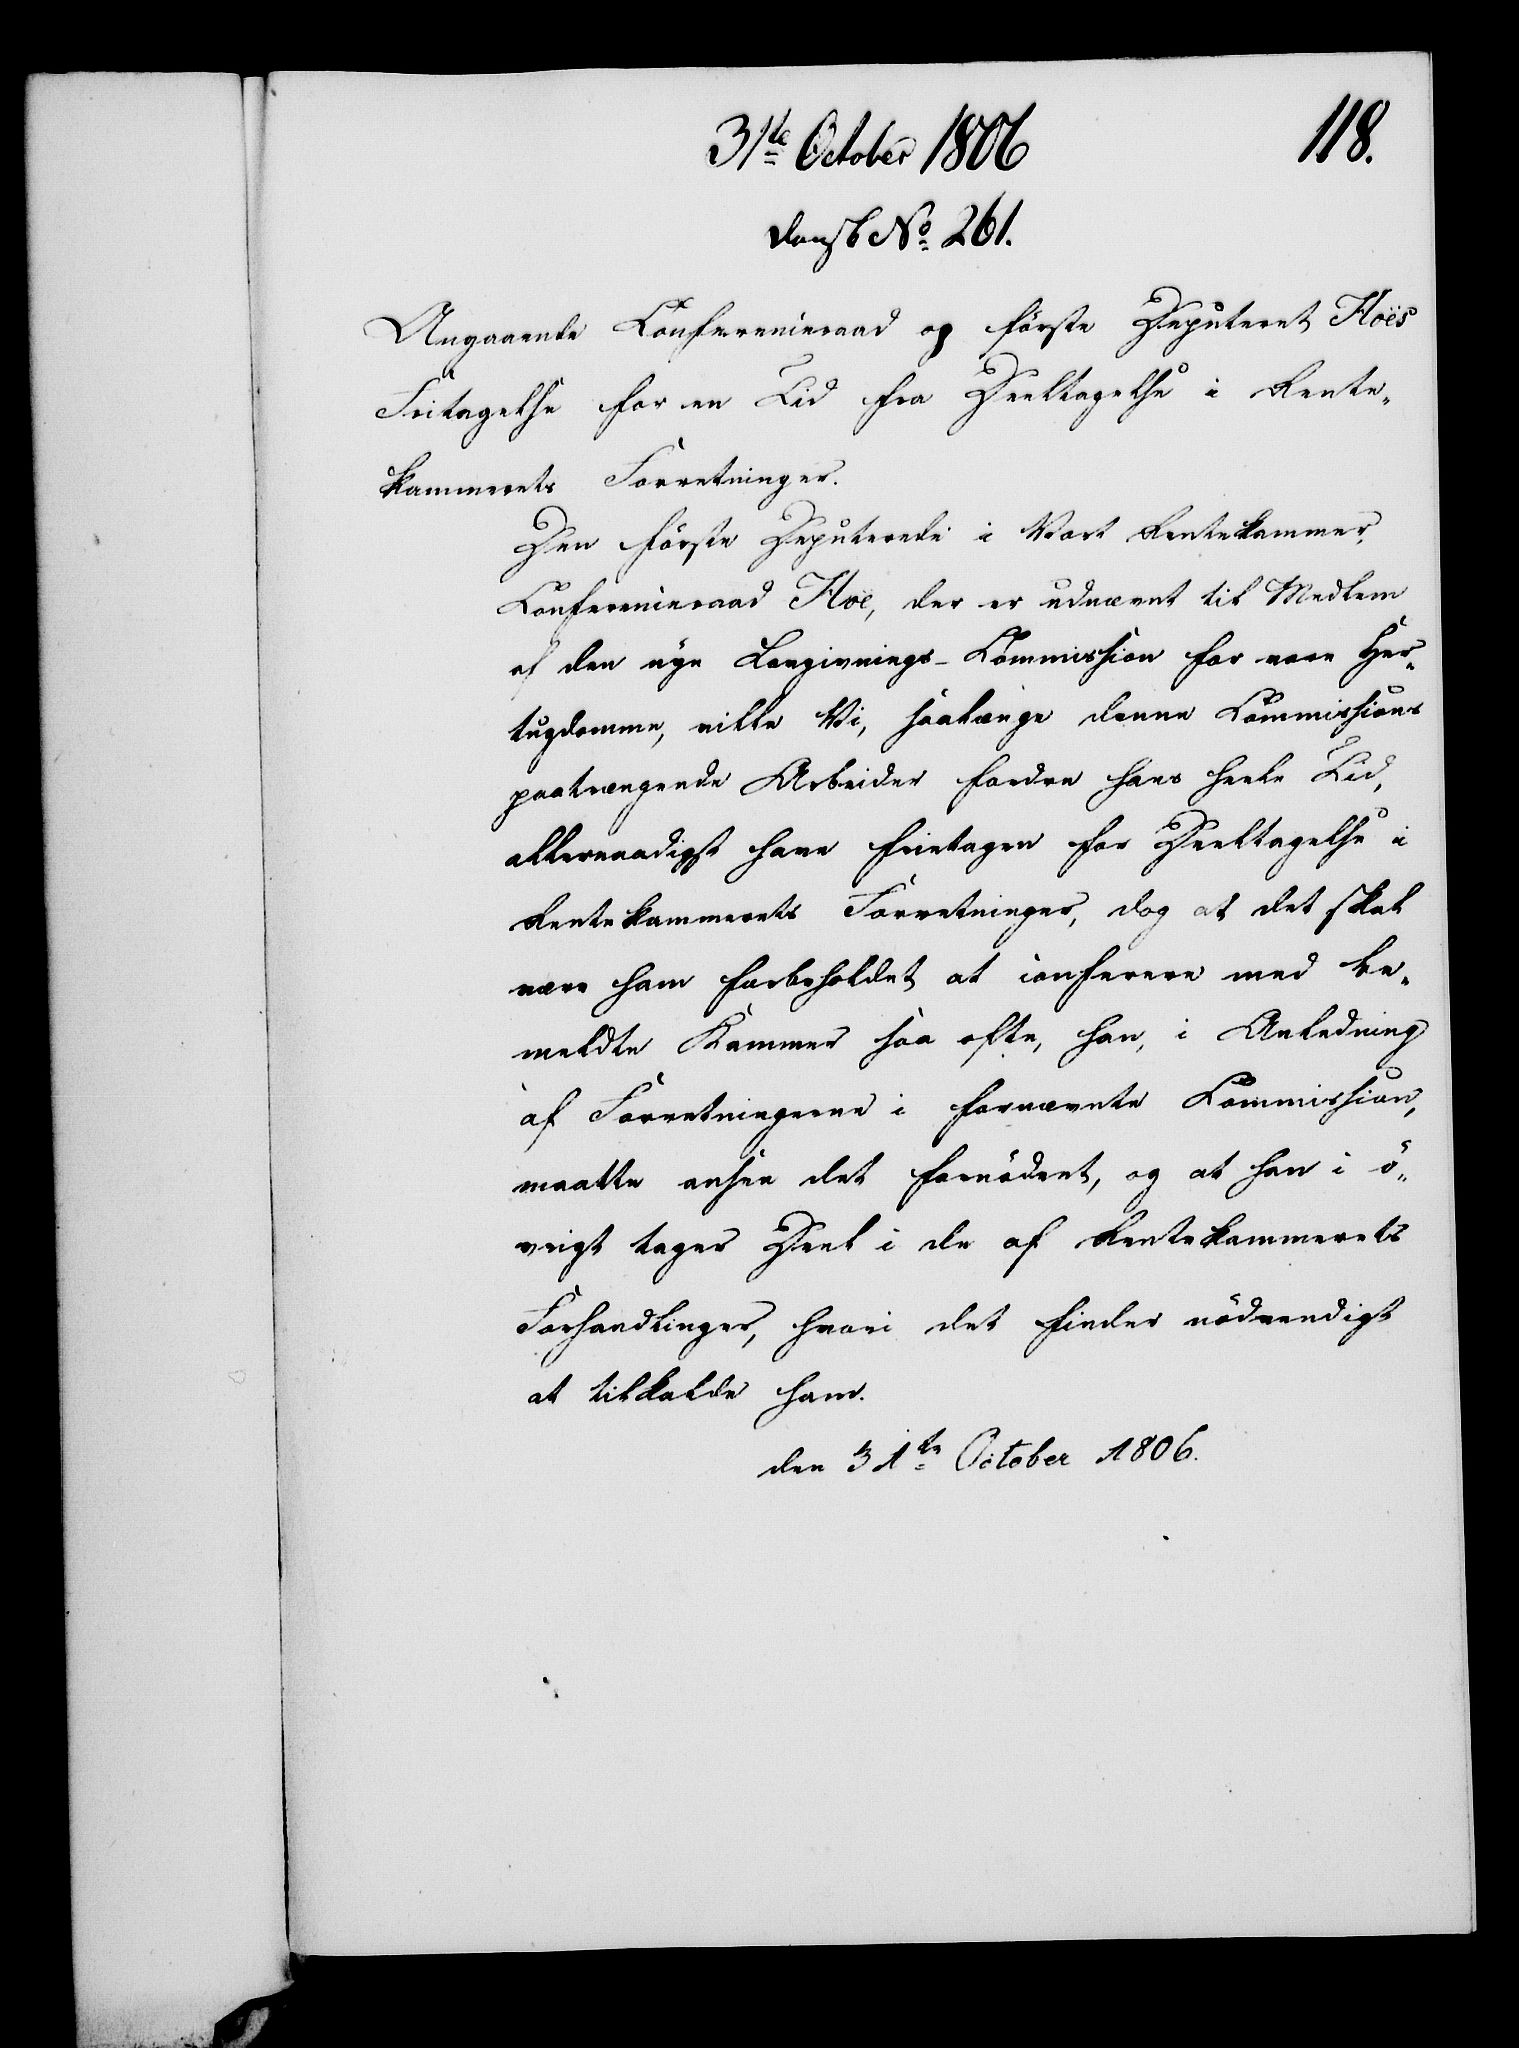 31te October 1806
118.
dansk No 261.
Angaaende Conferenceraad og förste Deputeret Hoës
Fritagelse for en Tid fra Deeltagelse i Rente-
kammerets Forretninger.
Den förste Deputerede i Vort Rentekammer,
Conferenceraad Hoe, der er udnævnt til Medlem
af den nye Lovgivnings-Commission for vore Her-
tugdomme, ville Vi, saalænge denne Commissions
paatrængende Arbeider fordre hans heele Tid,
allernaadigst have frietagen for Deeltagelse i
Rentekammerets Forretninger, dog at det skal
være ham forbeholdet at conferere med be-
meldte Kammer saa ofte, han, i Anledning
af Forretningerne i fornævnte Commission,
maatte ansee det fornödent, og at han i ö-
vrigt tager Deel i de af Rentekammerets
Forhandlinger, hvori det finder nödvendigt
at tilkalde ham.
den 31te October 1806.